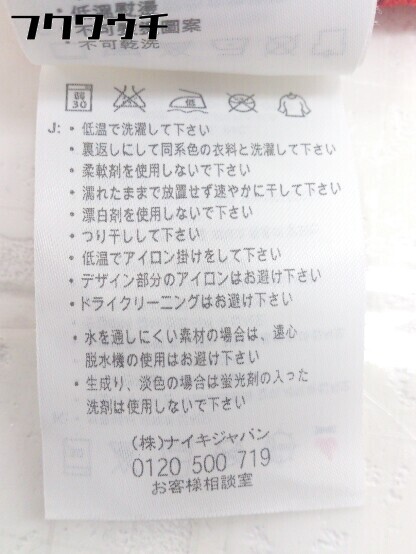 フクワウチ
・低溫熨燙
・不可乾洗
弱
30
低
J: ・低温で洗濯して下さい
・裏返しにして同系色の衣料と洗濯して下さい
・柔軟剤を使用しないで下さい
・濡れたままで放置せず速やかに干して下さい
・漂白剤を使用しないで下さい
・つり干しして下さい
・低温でアイロン掛けをして下さい
・デザイン部分のアイロンはお避け下さい
・ドライクリーニングはお避け下さい
・水を通しにくい素材の場合は、遠心
脱水機の使用はお避け下さい
・生成り、淡色の場合は蛍光剤の入った
洗剤は使用しないで下さい
(株)ナイキジャパン
0120 500 719
お客様相談室